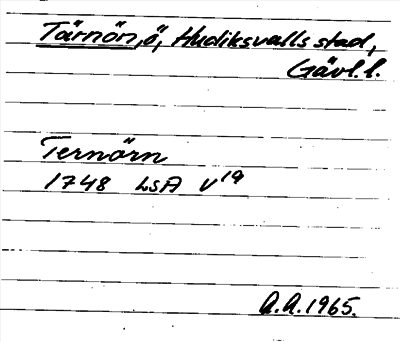 Tärnön, ö, Hudiksvalls stad,
Gävl. l.
Ternörn
1748 LSA V19
A.A. 1965.